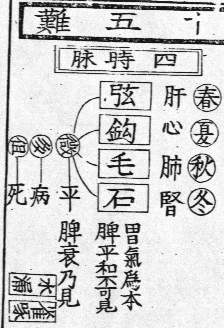 十五難
四時脉
春 肝 弦
夏 心 鈎
秋 肺 毛
冬 腎 石
微 平
多 病
但 死
胃氣爲本
脾平和不可見
脾衰乃見
雀啄
水漏